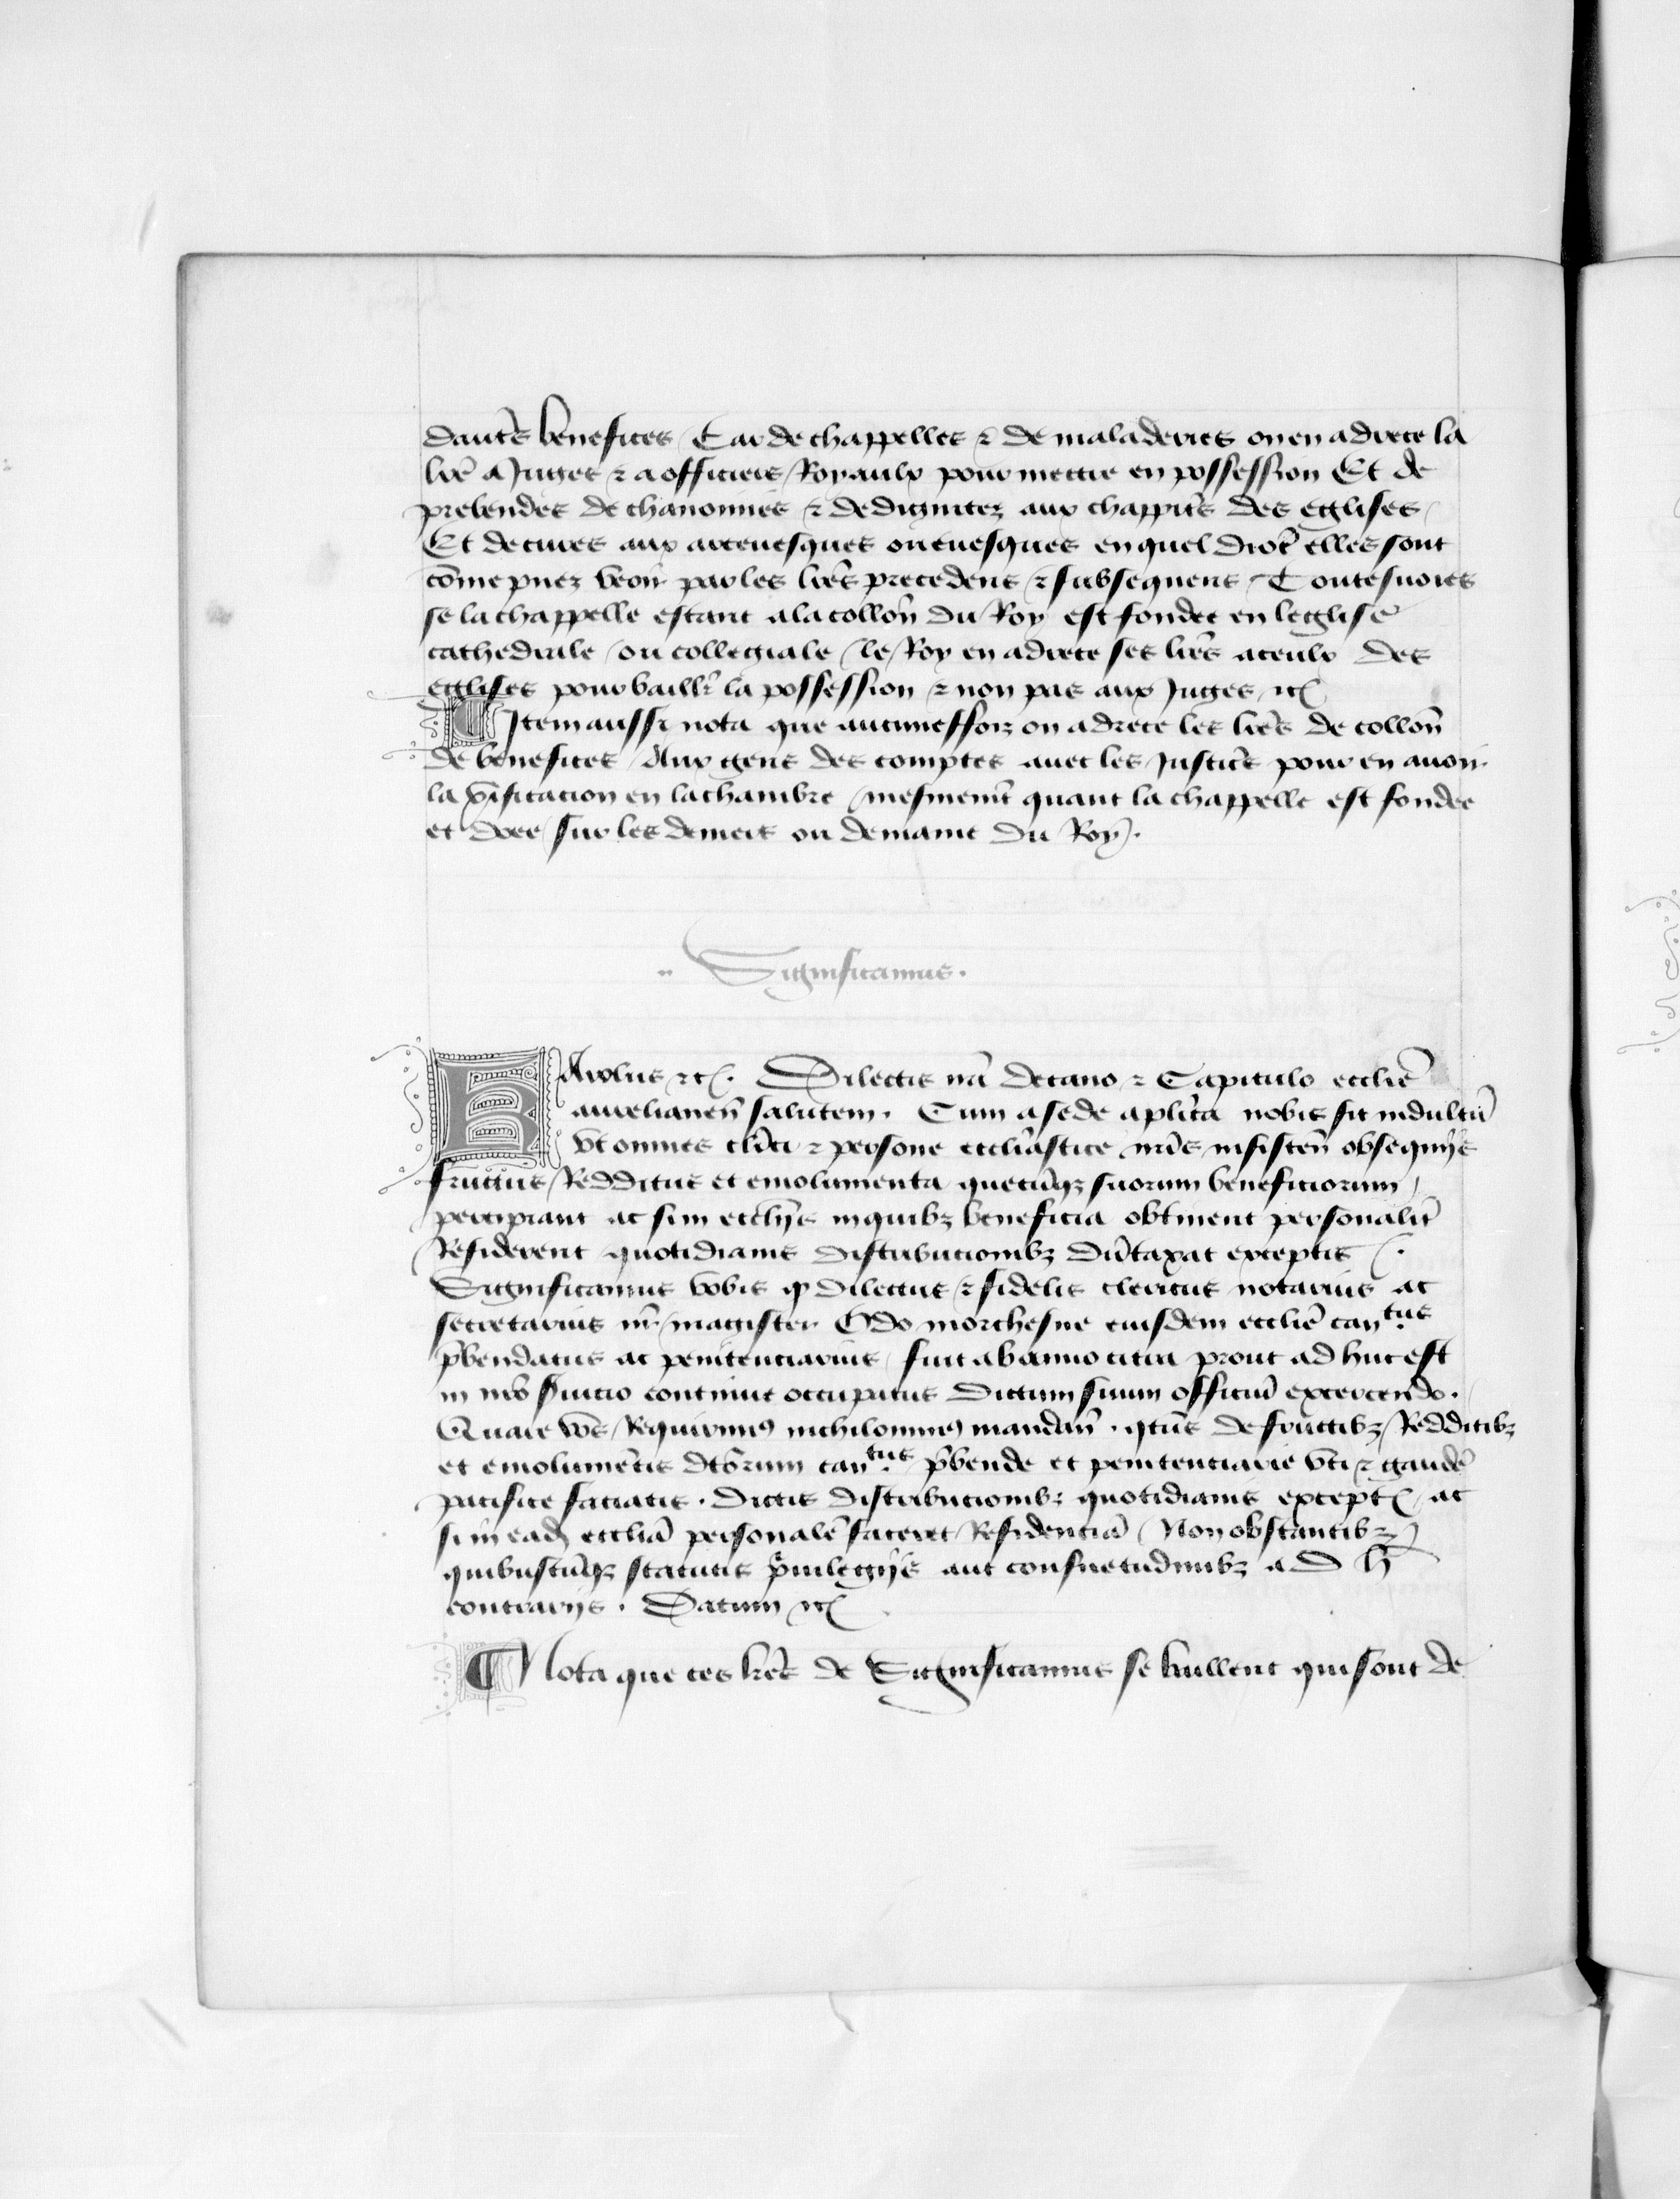 dautrẽs bẽnefices Car de chappelles ⁊ de maladeries on en adrece la
lrẽ a Juges ⁊ a officiers Royaulx pour mettre en possession Et de
prebendes de chanonnies ⁊ de dignitez aux chappitrẽs des eglises
Et de cures aux arceuesques ou euesques en quel dioc̃ elles sont
cõme pouez veoir par les lrẽs precedens ⁊ subsequens Toutesuoies
se la chappelle estant a la collõn du Roy est fondee en leglise
cathedrale ou collegiale le Roy en adrece ses lrẽs a ceulx des
eglises pour baillr̃ la possession ⁊ non pas aux Juges ⁊c̃
¶ Item aussi nota que aucuneffoiz on adrece les lrẽs de collõn
de benefices Aux gens des comptes auec les Justicẽs pour en auoir
la v̾ificacion en la chambre mesmem̃t quant la chappelle est fondee
et doee sur les deniers ou demaine du Roy.
Significamus.
Karolus ⁊c̃. Dilectis nrĩs decano ⁊ Capitulo ecclie͂
aurelianen̄ salutem. Cum a sede aplĩca nobis sit indultũ
vt omnes clĩci ⁊ persone ecclĩastice nrĩs insisten̄ obsequijs
fructus Redditus et emolumenta quecũqꝫ suorum beneficiorum
percipiant ac si in ecclĩjs in quibꝫ beneficia obtinent personalit̃
Residerent quotidianis distribucionibꝫ dũtaxat exceptis.
Significamus vobis ꝙ dilectus ⁊ fidelis clericus notarius ac
secretarius nr̃ magister Odo morchesne eiusdem ecclie͂ cantus
p̃bendatus ac penitenciarius fuit ab anno citra prout ad huc est
in nrõ ẜuicio continue occupatus dictum suum officiũ exercendo.
Quare vos Requirimus nichilominus mandan̄. qtũs de fructibꝫ Redditibꝫ
et emolumẽtis dc̃orum cantus p̃bende et penitenciarie vti ⁊ gaudẽ
pacifice faciatis. dictis distribucionibꝫ quotidianis except̃ ac
si in eadẽ ecclĩa personalẽ faceret Residenciã Non obstantibꝫ
quibuscũqꝫ statutis p̃uilegijs aut consuetudinibꝫ ad h̃
contrarijs. Datum ⁊c̃
¶ Nota que ces lrẽs de Significamus se baillent qui sont de